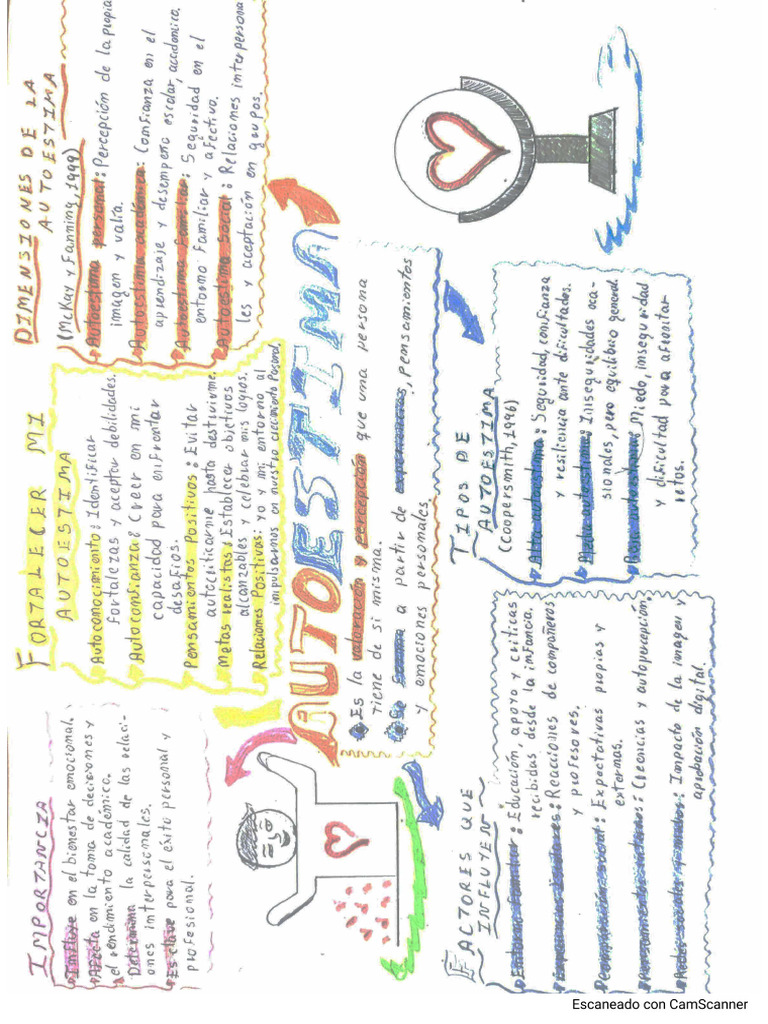 IMPORTANCIA
Influye en el bienestar emocional.
Afecta en la toma de decisiones y
el rendimiento académico.
Determina la calidad de las relaci-
ones interpersonales.
Es clave para el éxito personal y
profesional.
FORTALECER MI
AUTOESTIMA
Autoconocimiento: Identificar
fortalezas y aceptar debilidades.
Autoconfianza: Creer en mi
capacidad para enfrentar
desafíos.
Pensamientos Positivos: Evitar
autocriticarme hasta destruirme.
Metas realistas: Establecer objetivos
alcanzables y celebrar mis logros.
Relaciones Positivas: yo y mi entorno al
impulsarnos en nuestro crecimiento Personal.
DIMENSIONES DE LA
AUTOESTIMA
(McKay y Fanning, 1999)
Autoestima personal: Percepción de la propia
imagen y valía.
Autoestima académica: Confianza en el
aprendizaje y desempeño escolar, académico.
Autoestima Familiar: Seguridad en el
entorno familiar y afectivo.
Autoestima Social: Relaciones interpersona
les y aceptación en grupos.
AUTOESTIMA
Es la valoración y percepción que una persona
tiene de sí misma.
Se forma a partir de experiencias, pensamientos
y emociones personales.
FACTORES QUE
INFLUYEN
Entorno Familiar: Educación, apoyo y críticas
recibidas desde la infancia.
Experiencias Escolares: Reacciones de compañeros
y profesores.
Comparación social: Expectativas propias y
externas.
: Creencias y autopercepción.
Redes sociales y medios: Impacto de la imagen y
aprobación digital.
TIPOS DE
AUTOESTIMA
(Coopersmith, 1996)
Alta autoestima: Seguridad, confianza
y resiliencia ante dificultades.
Media autoestima: Inseguridades oca-
sionales, pero equilibrio general
Baja autoestima: Miedo, inseguridad
y dificultad para afrontar
retos.
Escaneado con CamScanner